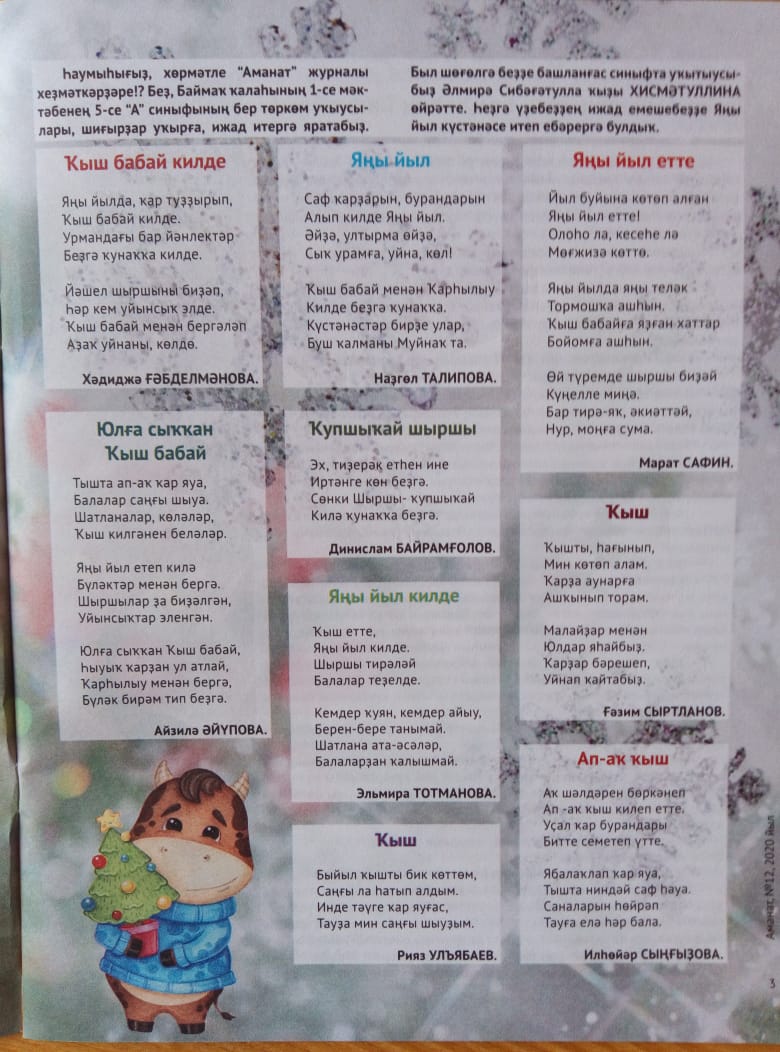 Һаумыһығыҙ, хөрмәтле “Аманат” журналы
хеҙмәткәрҙәре!? Беҙ, Баймаҡ ҡалаһының 1-се мәк-
тәбенең 5-се “А” синыфының бер төркөм уҡыусы-
лары, шиғырҙар уҡырға, ижад итергә яратабыҙ.
Был шөғөлгә беҙҙе башланғас синыфта уҡытыусы-
быҙ Әлмирә Сибәғәтулла ҡыҙы ХИСМӘТУЛЛИНА
өйрәтте. Һеҙгә үҙебеҙҙең ижад емешебеҙҙе Яңы
йыл күстәнәсе итеп ебәрергә булдыҡ.
Ҡыш бабай килде
Яңы йылда, ҡар туҙҙырып,
Ҡыш бабай килде.
Урмандағы бар йәнлектәр
Беҙгә ҡунаҡҡа килде.
Йәшел шыршыны биҙәп,
Һәр кем уйынсыҡ элде.
Ҡыш бабай менән бергәләп
Аҙаҡ уйнаны, көлдө.
Хәдиджә ҒӘБДЕЛМӘНОВА.
Юлға сыҡҡан
Ҡыш бабай
Тышта ап-аҡ ҡар яуа,
Балалар саңғы шыуа.
Шатланалар, көләләр,
Ҡыш килгәнен беләләр.
Яңы йыл етеп килә
Бүләктәр менән бергә.
Шыршылар ҙа биҙәлгән,
Уйынсыҡтар эленгән.
Юлға сыҡҡан Ҡыш бабай,
Һыуыҡ ҡарҙан ул атлай,
Ҡарһылыу менән бергә,
Бүләк бирәм тип беҙгә.
Айзилә ӘЙҮПОВА.
Яңы йыл
Саф ҡарҙарын, бурандарын
Алып килде Яңы йыл.
Әйҙә, ултырма өйҙә,
Сыҡ урамға, уйна, көл!
Ҡыш бабай менән Ҡарһылыу
Килде беҙгә ҡунаҡҡа.
Күстәнәстәр бирҙе улар,
Буш ҡалманы Муйнаҡ та.
Наҙгөл ТАЛИПОВА.
Ҡупшыҡай шыршы
Эх, тиҙерәк етһен ине
Иртәнге көн беҙгә.
Сөнки Шыршы- ҡупшыҡай
Килә ҡунаҡҡа беҙгә.
Динислам БАЙРАМҒОЛОВ.
Яңы йыл килде
Ҡыш етте,
Яңы йыл килде.
Шыршы тирәләй
Балалар теҙелде.
Кемдер ҡуян, кемдер айыу,
Берен-бере танымай.
Шатлана ата-әсәләр,
Балаларҙан ҡалышмай.
Эльмира ТОТМАНОВА.
Ҡыш
Быйыл ҡышты бик көттөм,
Саңғы ла һатып алдым.
Инде тәүге ҡар яуғас,
Тауҙа мин саңғы шыуҙым.
Рияз УЛЪЯБАЕВ.
Яңы йыл етте
Йыл буйына көтөп алған
Яңы йыл етте!
Олоһо ла, кесеһе лә
Мөғжизә көттө.
Яңы йылда яңы теләк
Тормошҡа ашһын.
Ҡыш бабайға яҙған хаттар
Бойомға ашһын.
Өй түремде шыршы биҙәй
Күңелле миңә.
Бар тирә-яҡ, әкиәттәй,
Нур, моңға сума.
Марат САФИН.
Ҡыш
Ҡышты, һағынып,
Мин көтөп алам.
Ҡарҙа аунарға
Ашҡынып торам.
Малайҙар менән
Юлдар яһайбыҙ.
Ҡарҙар бәрешеп,
Уйнап ҡайтабыҙ.
Ғәзим СЫРТЛАНОВ.
Ап-аҡ ҡыш
Аҡ шәлдәрен бөркәнеп
Ап -аҡ ҡыш килеп етте.
Уҫал ҡар бурандары
Битте семетеп үтте.
Ябалаҡлап ҡар яуа,
Тышта ниндәй саф һауа.
Саналарын һөйрәп
Тауға елә һәр бала.
Илһөйәр СЫҢҒЫҘОВА.
Аманат, №12, 2020 йыл
3